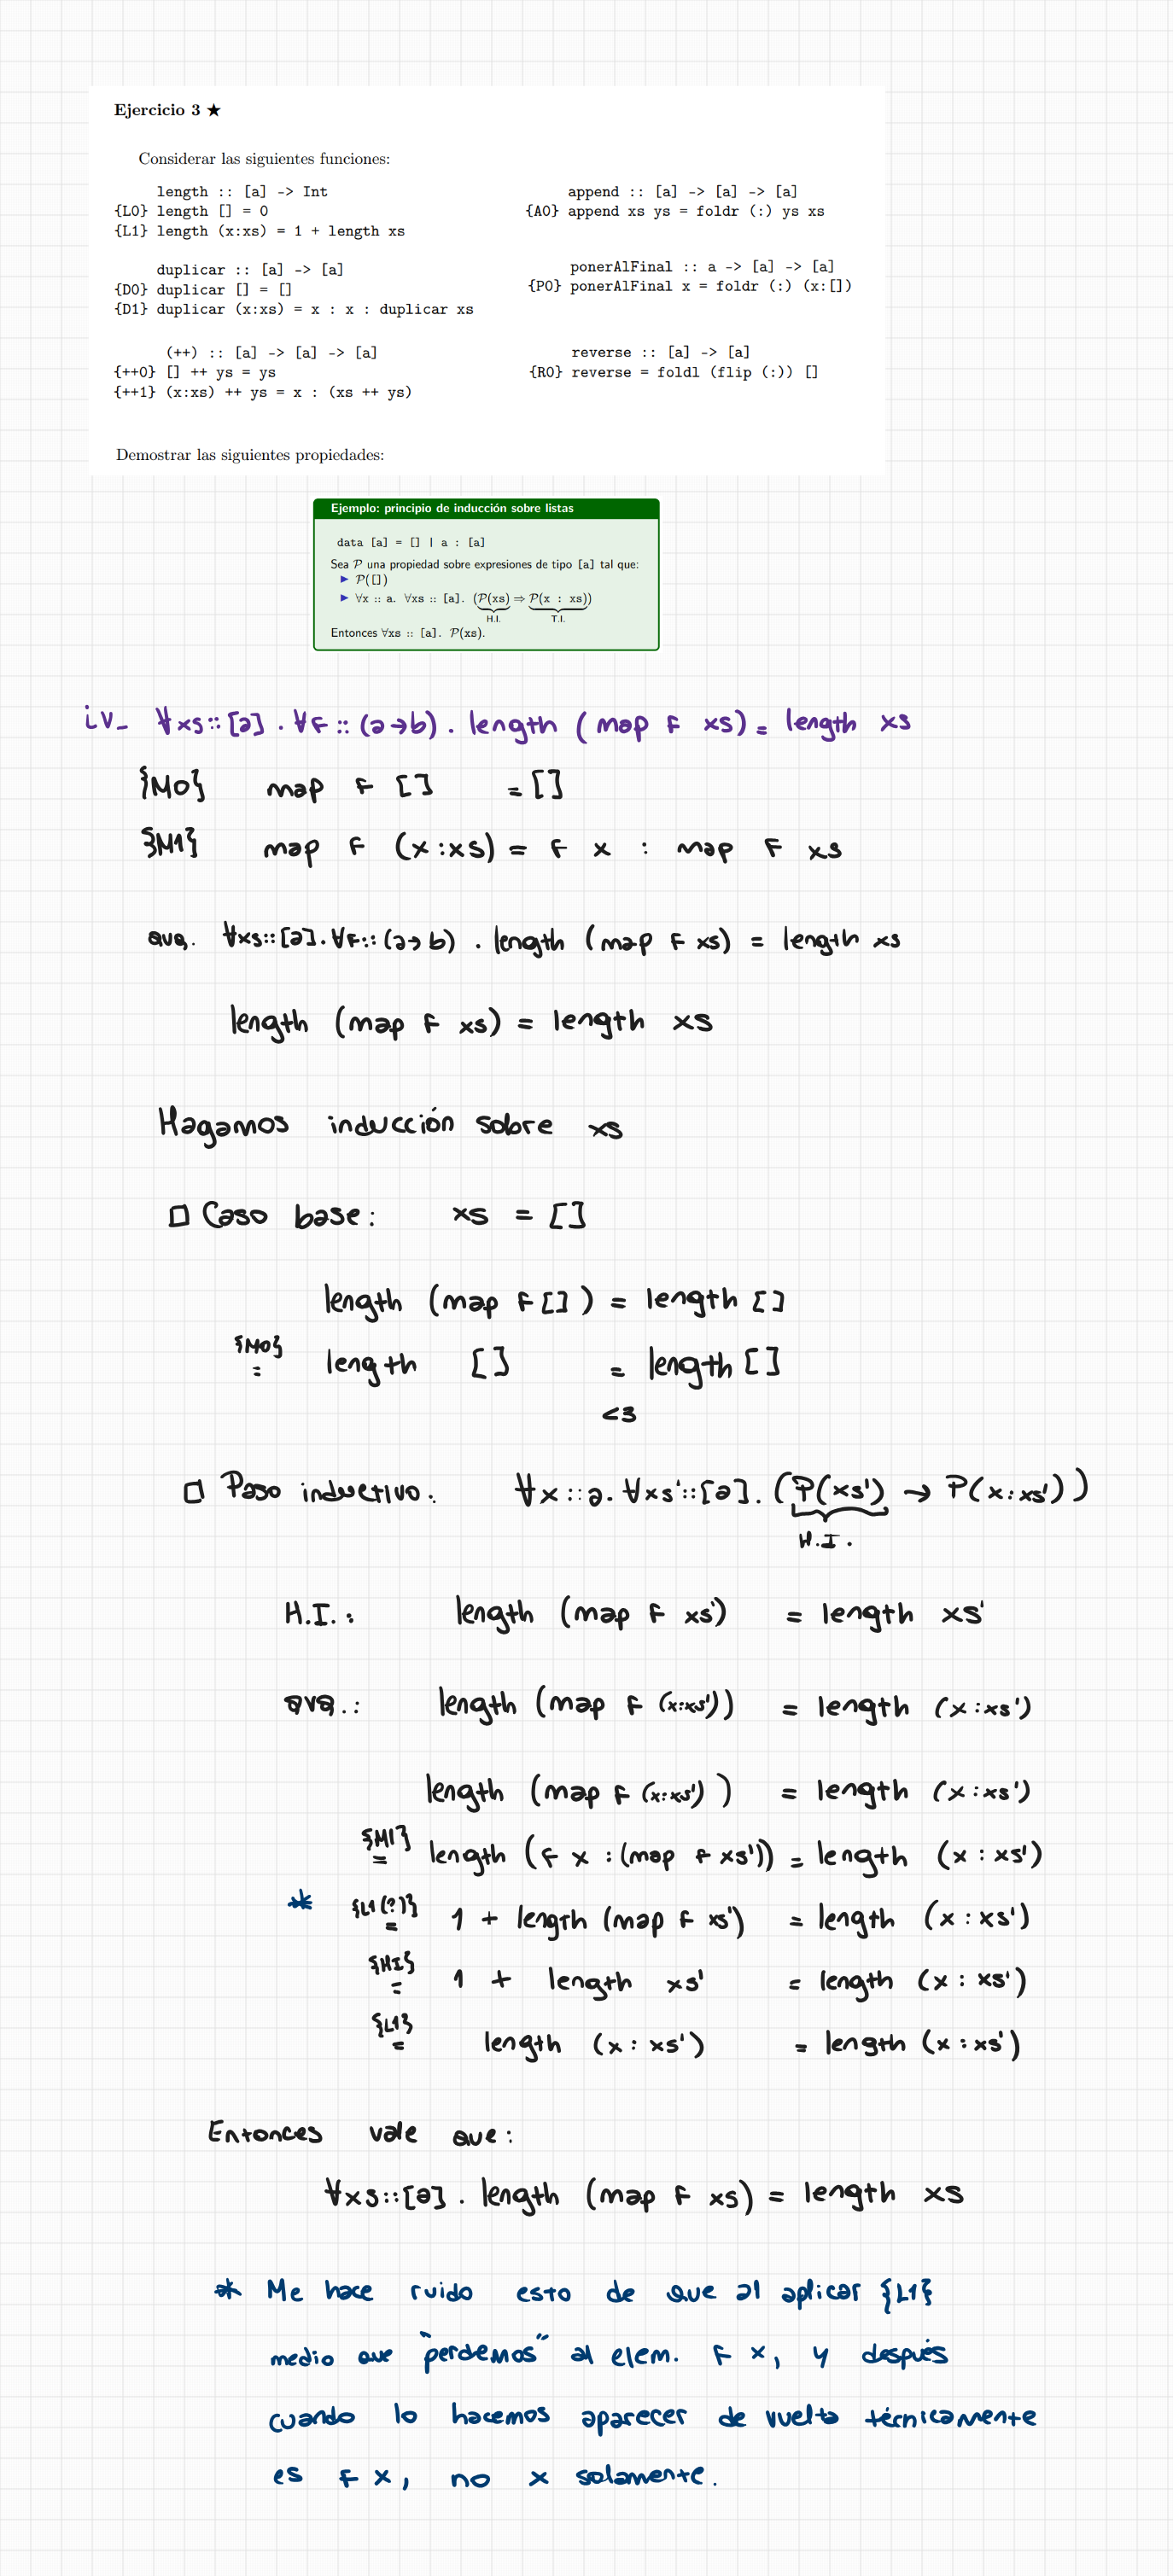 Ejercicio 3 ★
Considerar las siguientes funciones:
length :: [a] -> Int
{L0} length [] = 0
{L1} length (x:xs) = 1 + length xs
append :: [a] -> [a] -> [a]
{A0} append xs ys = foldr (:) ys xs
duplicar :: [a] -> [a]
{D0} duplicar [] = []
{D1} duplicar (x:xs) = x : x : duplicar xs
ponerAlFinal :: a -> [a] -> [a]
{P0} ponerAlFinal x = foldr (:) (x:[])
(++) :: [a] -> [a] -> [a]
{++0} [] ++ ys = ys
{++1} (x:xs) ++ ys = x : (xs ++ ys)
reverse :: [a] -> [a]
{R0} reverse = foldl (flip (:)) []
Demostrar las siguientes propiedades:
Ejemplo: principio de inducción sobre listas
data [a] = [] | a : [a]
Sea P una propiedad sobre expresiones de tipo [a] tal que:
▶ P([])
▶ ∀x :: a. ∀xs :: [a]. (P(xs) ⇒ P(x : xs))
H.I. T.I.
Entonces ∀xs :: [a]. P(xs).
iv_ ∀xs::[a].∀F::(a→b). length (map F xs) = length xs
{M0} map F [] = []
{M1} map F (x:xs) = F x : map F xs
qvq. ∀xs::[a].∀F::(a→b). length (map F xs) = length xs
length (map F xs) = length xs
Hagamos inducción sobre xs
□ Caso base: xs = []
length (map F []) = length []
{M0} = length [] = length []
<3
□ Paso inductivo: ∀x::a.∀xs'::[a].(P(xs') → P(x:xs'))
H.I.
H.I.: length (map F xs') = length xs'
qvq.: length (map F (x:xs')) = length (x:xs')
length (map F (x:xs')) = length (x:xs')
{M1} = length (F x : (map F xs')) = length (x : xs')
* {L1(?)} = 1 + length (map F xs') = length (x : xs')
{HI} = 1 + length xs' = length (x : xs')
{L1} = length (x : xs') = length (x : xs')
Entonces vale que:
∀xs::[a]. length (map F xs) = length xs
* Me hace ruido esto de que al aplicar {L1}
medio que "perdemos" al elem. F x, y después
cuando lo hacemos aparecer de vuelta técnicamente
es F x, no x solamente.